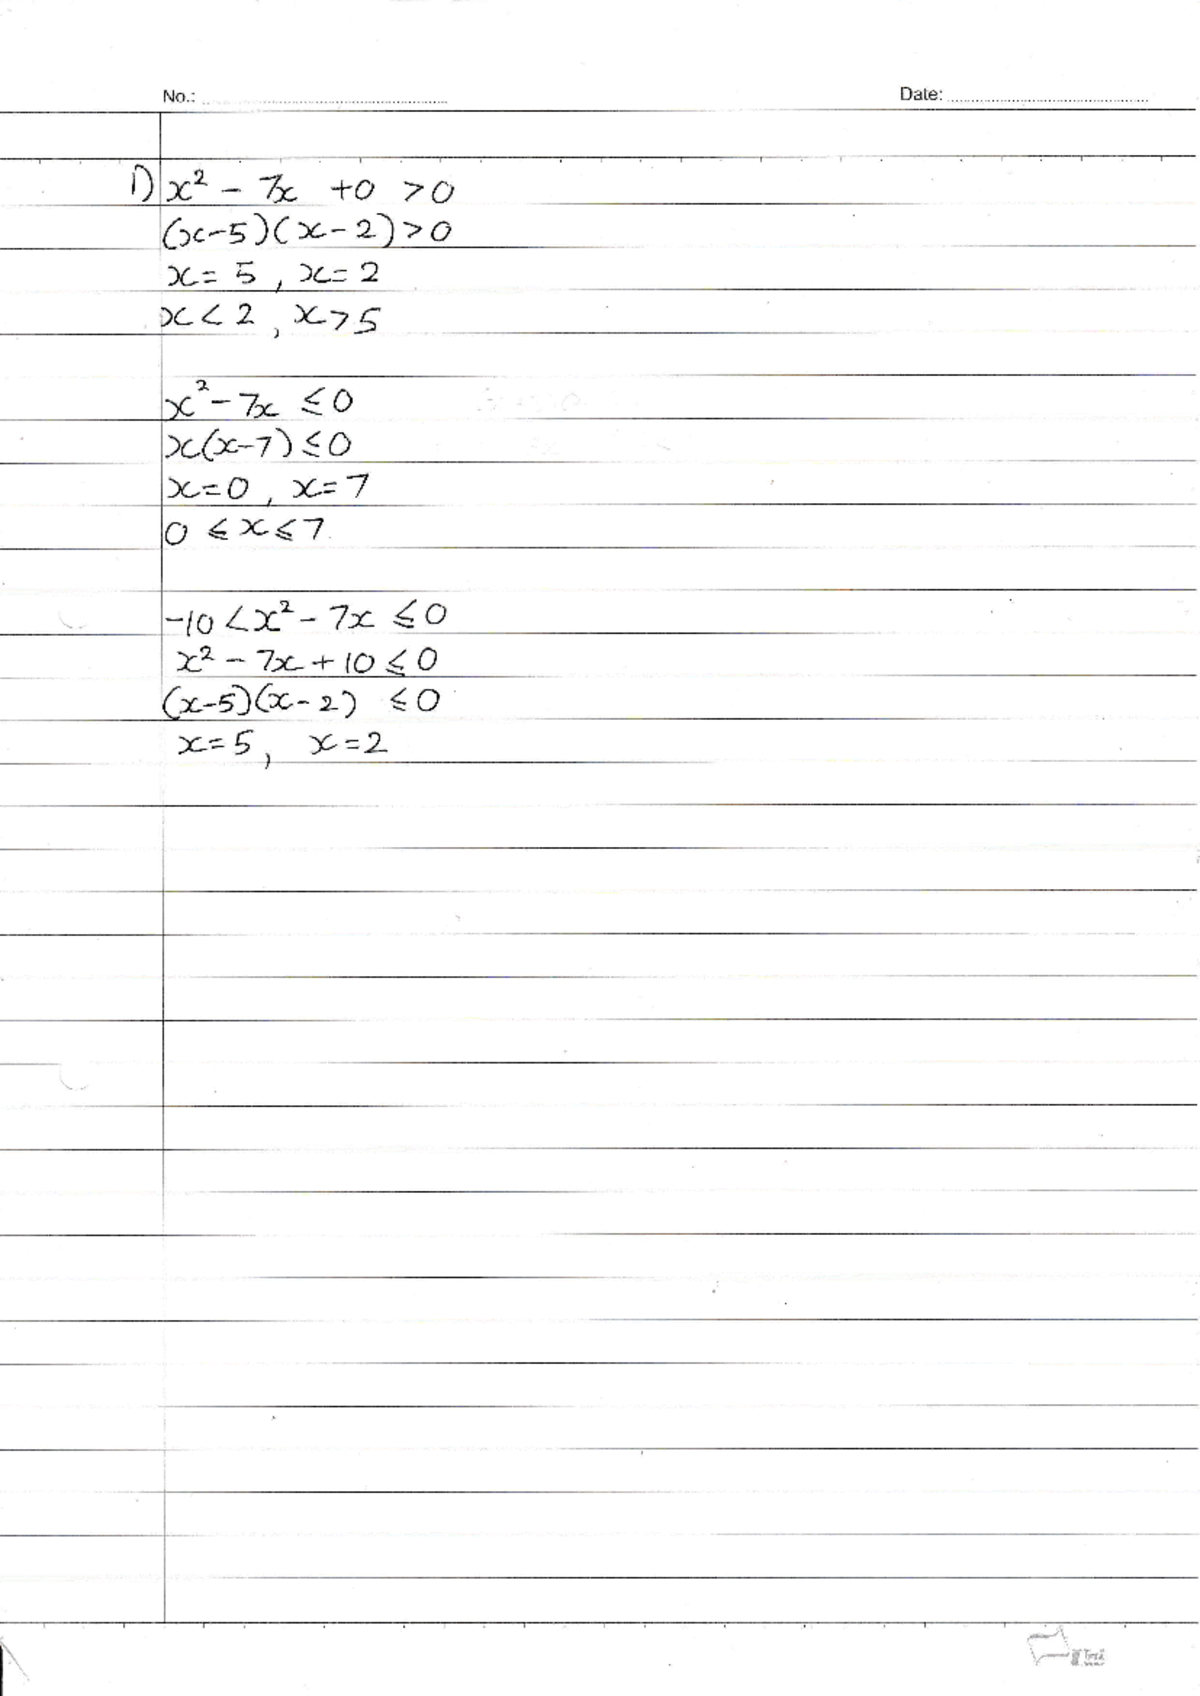 No.: Date:
1) x² - 7x +0 >0
(x-5)(x-2)>0
x= 5 , x=2
x<2 , x>5
x² - 7x ≤0
x(x-7)≤0
x=0 , x=7
0 ≤x≤7
-10 <x² - 7x ≤0
x² - 7x + 10 ≤0
(x-5)(x-2) ≤0
x=5 , x=2